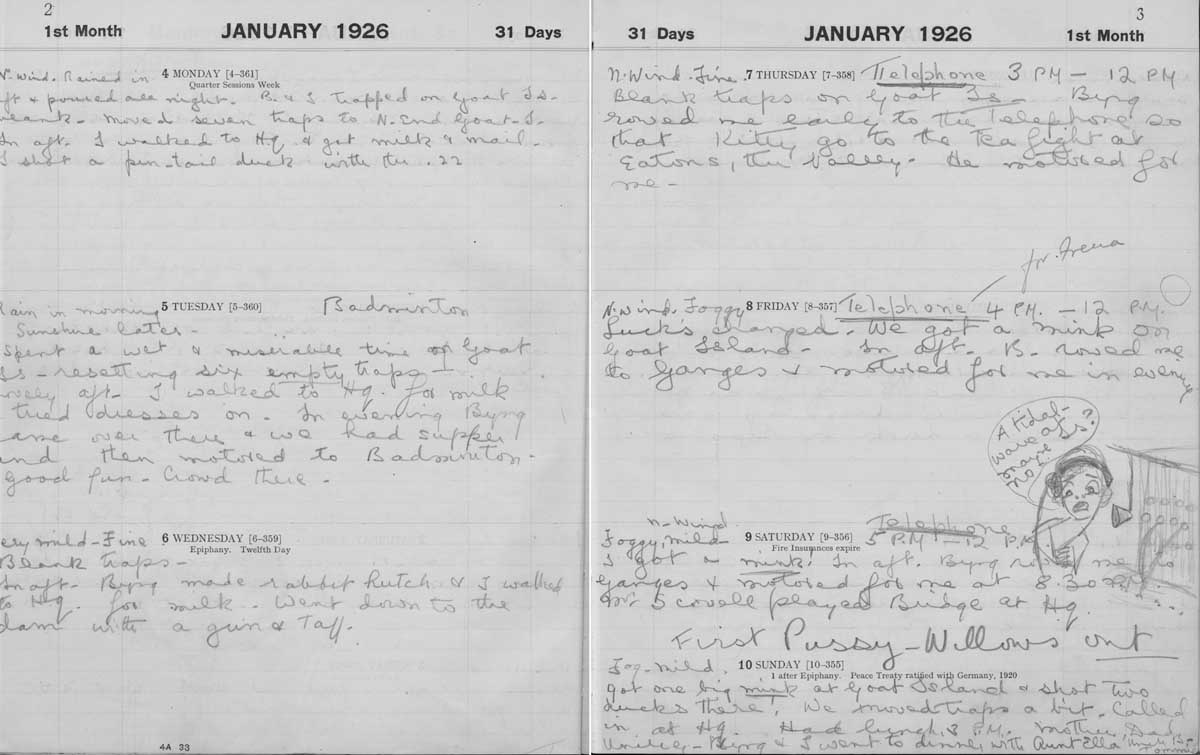 2
1st Month JANUARY 1926 31 Days
N. Wind. Rained in 4 MONDAY [4–361]
Quarter Sessions Week
aft & poured all night. B. & I trapped on Goat Is-
blank- Moved seven traps to N. End Goat I-
In aft. I walked to Hq. & got milk & mail.
I shot a pin-tail duck with the .22
Rain in morning 5 TUESDAY [5–360] Badminton
Sunshine later-
Spent a wet & miserable time on Goat
Is - resetting six empty traps-
aft- I walked to Hq. for milk
tried dresses on. In evening Byng
came over there & we had supper
and then motored to Badminton-
good fun- Crowd there.
Very mild-Fine 6 WEDNESDAY [6–359]
Epiphany. Twelfth Day
Blank traps-
In aft- Byng made rabbit hutch & I walked
to Hq. for milk. Went down to the
dam with a gun & Taff.
4A 33
3
31 Days JANUARY 1926 1st Month
N. Wind Fine. 7 THURSDAY [7–358] Telephone 3 PM – 12 PM
Blank traps on Goat Is- Byng
rowed me early to the Telephone so
that Kitty go to the Tea fight at
Eatons, the Valley- He motored for
me-
for Frena
N. Wind. Foggy 8 FRIDAY [8–357] Telephone 4 PM. – 12 PM.
Luck's changed. We got a mink on
Goat Island- In aft. B. rowed me
to Ganges & motored for me in evening
A tidal-
wave at
No!
N-Wind Telephone
Foggy, Mild 9 SATURDAY [9–356] 5 P.M – 12 P.M
Fire Insurances expire
I got a mink. In aft. Byng me to
Ganges & motored for me at 8.30 PM
Mr Scovell played Bridge at Hq.
First Pussy-Willows out
Fog-mild. 10 SUNDAY [10–355]
1 after Epiphany. Peace Treaty ratified with Germany, 1920
got one big mink at Goat Island & shot two
ducks there! We moved traps a bit- Called
in at Hq. Had lunch 3 P.M. Mother, Dad,
Byng & I went to dinner with Aunt